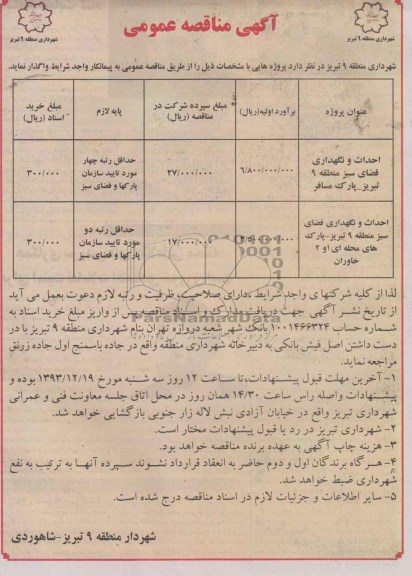 آگهی مناقصه عمومی
شهرداری منطقه ۹ تبریز
شهرداری منطقه ۹ تبریز
شهرداری منطقه ۹ تبریز در نظر دارد پروژه هایی با مشخصات ذیل را از طریق مناقصه عمومی به پیمانکار واجد شرایط واگذار نماید.
عنوان پروژه
برآورد اولیه(ریال)
مبلغ سپرده شرکت در
مناقصه (ریال)
پایه لازم
مبلغ خرید
اسناد (ریال)
احداث و نگهداری
فضای سبز منطقه ۹
تبریز_پارک مسافر
۶/۸۰۰/۰۰۰/۰۰۰
۲۷/۰۰۰/۰۰۰
حداقل رتبه چهار
مورد تایید سازمان
پارکها و فضای سبز
۳۰۰/۰۰۰
احداث و نگهداری فضای
سبز منطقه ۹ تبریز-پارک
های محله ای ۱و ۲
خاوران
۱۷/۰۰۰/۰۰۰
حداقل رتبه دو
مورد تایید سازمان
پارکها و فضای سبز
۳۰۰/۰۰۰
ParsNamadData
لذا از کلیه شرکتها ی واجد شرایط ،دارای صلاحیت، ظرفیت و رتبه لازم دعوت بعمل می آید
از تاریخ نشر آگهی جهت دریافت مدارک و اسناد مناقصه پس از واریز مبلغ خرید اسناد به
شماره حساب ۱۰۰۱۴۶۶۳۲۴ بانک شهر شعبه دروازه تهران بنام شهرداری منطقه ۹ تبریز با در
دست داشتن اصل فیش بانکی به دبیرخانه شهرداری منطقه ۹ واقع در جاده باسمنج اول جاده زرنق
مراجعه نماید.
۱- آخرین مهلت قبول پیشنهادات،تا ساعت ۱۲ روز سه شنبه مورخ ۱۳۹۳/۱۲/۱۹ بوده و
پیشنهادات واصله راس ساعت ۱۴/۳۰ همان روز در محل اتاق جلسه معاونت فنی و عمرانی
شهرداری تبریز واقع در خیابان آزادی نبش لاله زار جنوبی بازگشایی خواهد شد.
۲- شهرداری تبریز در رد یا قبول پیشنهادات مختار است.
۳- هزینه چاپ آگهی به عهده برنده مناقصه خواهد بود.
۴- هر گاه برندگان اول و دوم حاضر به انعقاد قرارداد نشوند سپرده آنها به ترتیب به نفع
شهرداری ضبط خواهد شد.
۵- سایر اطلاعات و جزئیات لازم در اسناد مناقصه درج شده است.
شهردار منطقه ۹ تبریز-شاهوردی